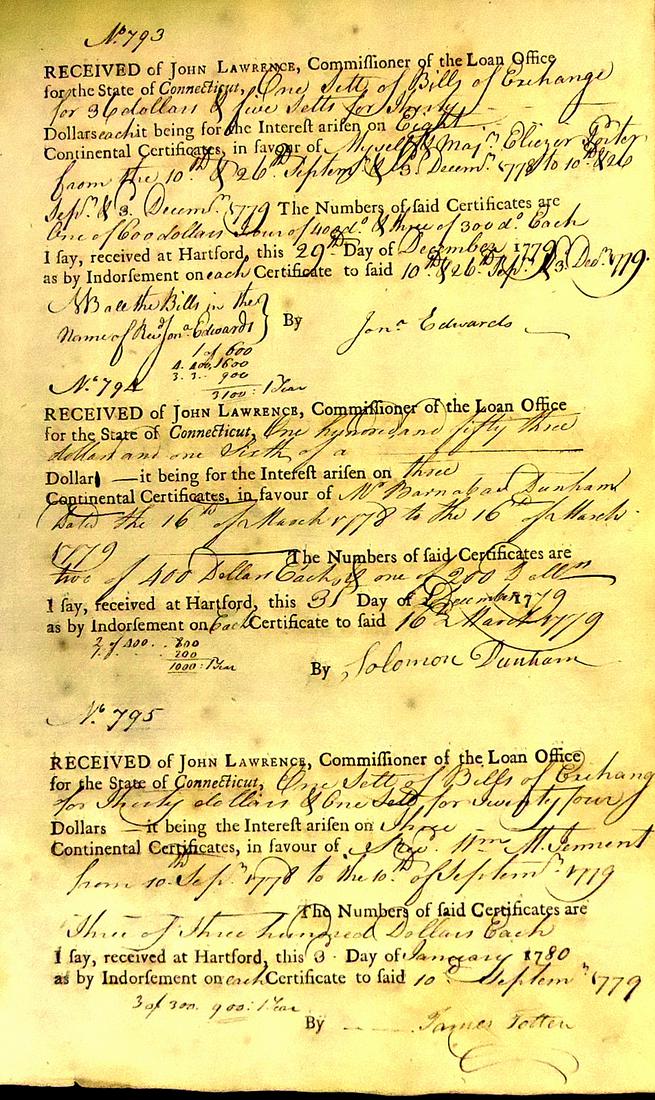 No. 793
RECEIVED of JOHN LAWRENCE, Commiſſioner of the Loan Office
for the State of Connecticut, One Sett of Bills of Exchange
for 36 dollars & five Setts for Thirty
Dollars each it being for the Intereſt ariſen on Eight
Continental Certificates, in favour of Myself & Majr. Eliezer Porter
from the 10th & 26th Septemr. & 3. Decemr. 1778 to 10th & 26
Sepr. & 3. Decemr. 1779 The Numbers of ſaid Certificates are
One of 600 dollars four of 400 do. & three of 300 do. Each
I ſay, received at Hartford, this 29th Day of December 1779
as by Indorſement on each Certificate to ſaid 10th & 26th Sepr. & 3. Decr. 1779.
NB all the Bills in the
Name of Revd Jona. Edwards
By Jona. Edwards
1 of 600
4. 400, 1600
3. 3.. 900
3100: 1 Year
No. 794
RECEIVED of JOHN LAWRENCE, Commiſſioner of the Loan Office
for the State of Connecticut, One hundred and fifty three
dollars and one Sixth of a
Dollar — it being for the Intereſt ariſen on three
Continental Certificates, in favour of Mr. Barnabas Dunham
Dated the 16th of March 1778 to the 16th of March
1779 The Numbers of ſaid Certificates are
two of 400 Dollars Each, & one of 200 Dollrs
I ſay, received at Hartford, this 31 Day of December 1779
as by Indorſement on Each Certificate to ſaid 16th March 1779
2 of 400 .. 800
1. 200
1000: 1 Year
By Solomon Dunham
No. 795
RECEIVED of JOHN LAWRENCE, Commiſſioner of the Loan Office
for the State of Connecticut, One Sett of Bills of Exchang
for Thirty dollars & One Sett for Twenty four
Dollars — it being the Intereſt ariſen on Three
Continental Certificates, in favour of Revd. Wm. M. Tennent
from 10th Sepr. 1778 to the 10th of Septemr. 1779
The Numbers of ſaid Certificates are
Three of Three hundred Dollars Each
I ſay, received at Hartford, this 3 Day of January 1780
as by Indorſement on each Certificate to ſaid 10th Septemr 1779
3 of 300. 900: 1 Year
By James Totten